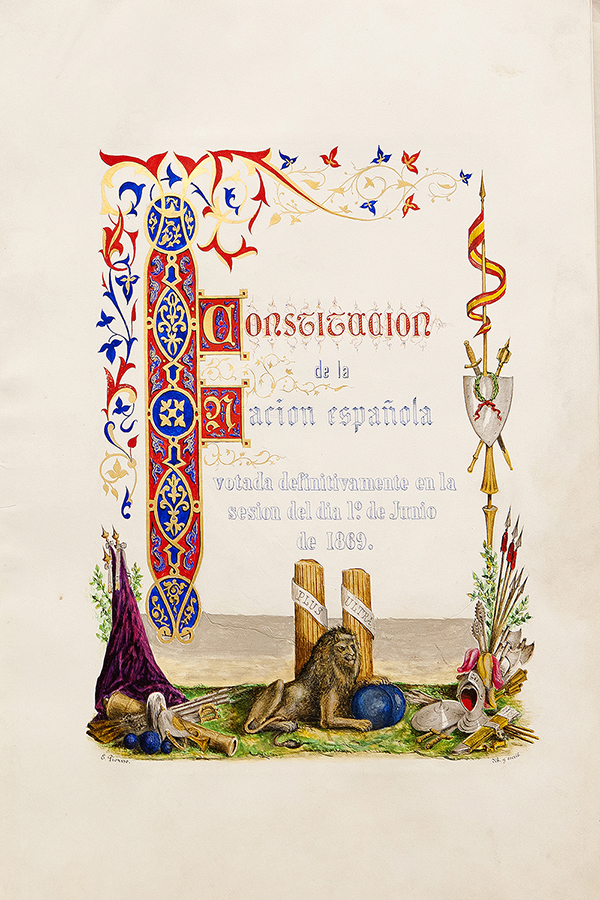 Constitucion
de la
Nacion española
votada definitivamente en la
sesion del dia 1º. de Junio
de 1869.
PLUS
ULTRA